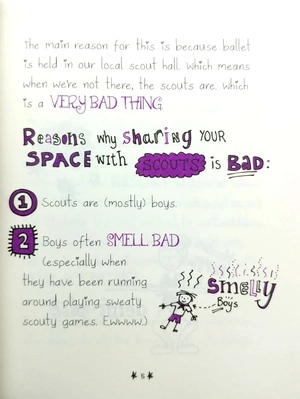 The main reason for this is because ballet
is held in our local scout hall. Which means
when we're not there, the scouts are. Which
is a VERY BAD THING.
Reasons why sharing YOUR
SPACE with SCOUTS is BAD:
1 Scouts are (mostly) boys.
2 Boys often SMELL BAD
(especially when
they have been running
around playing sweaty
scouty games. Ewwww.)
smelly
Boys